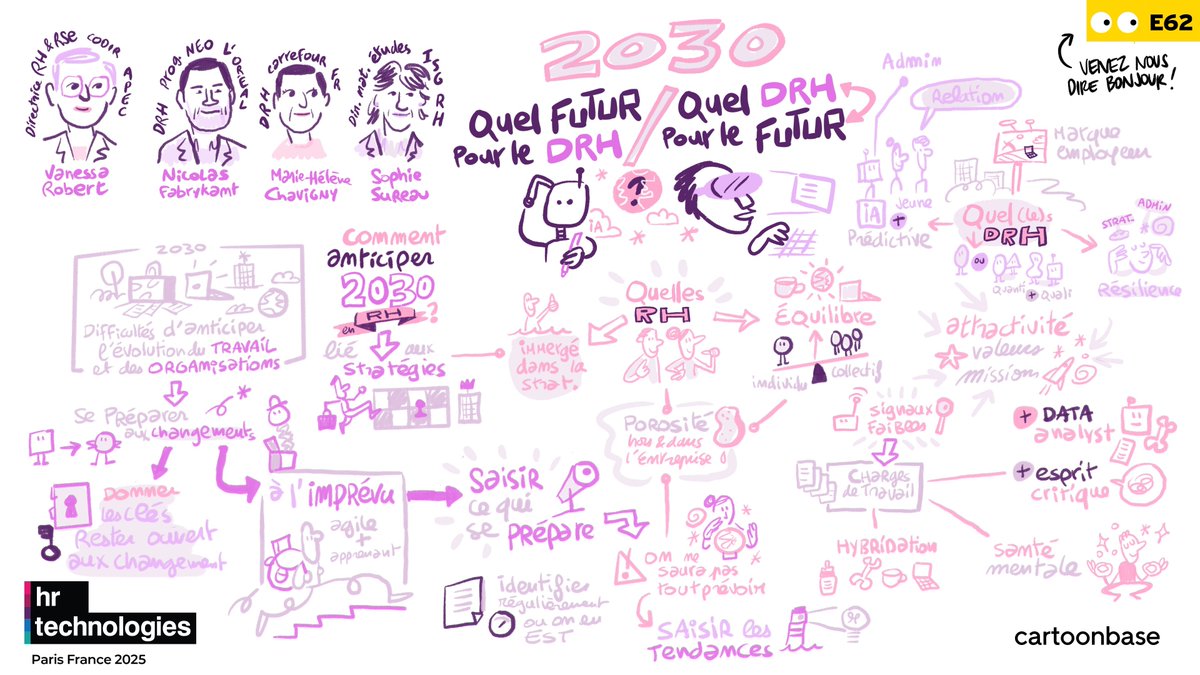 Directrice RH & RSE CODIR APEC
Vanessa
Robert
DRH Prog NEO L'OREAL
Nicolas
Fabrykant
DRH Carrefour FR
Marie-Hélène
Chavigny
Dir. mat. études ISGRH
Sophie
Sureau
2030
Quel FUTUR
Pour le DRH
/
Quel DRH
Pour le FUTUR
?
iA
E62
VENEZ NOUS
DIRE BONJOUR !
Admin
Relation
Jeune
iA
+
Prédictive
Marque
employeur
Quel(le)s
DRH
ou
Quanti + Quali
STRAT.
ADMIN
Résilience
2030
Difficultés d'anticiper
l'évolution du TRAVAIL
et des ORGANISATIONS
Se Préparer
aux changements
Donner
les clés
Rester ouvert
aux changement
Comment
anticiper
2030
en RH ?
lié aux
stratégies
à l'imprévu
agile
+
apprenant
immergé
dans la
strat.
Quelles
RH
Équilibre
individu
collectif
Porosité
hors & dans
l'entreprise !
Saisir
ce qui
se PRÉPARE
identifier
régulièrement
où on en
EST
! on ne
saura pas
tout prévoir
SAISIR les
Tendances
attractivité
valeurs
mission
signaux
faibles
Charges
de travail
HYBRIDATION
+ DATA
analyst
+ esprit
critique
santé
mentale
hr
technologies
Paris France 2025
cartoonbase